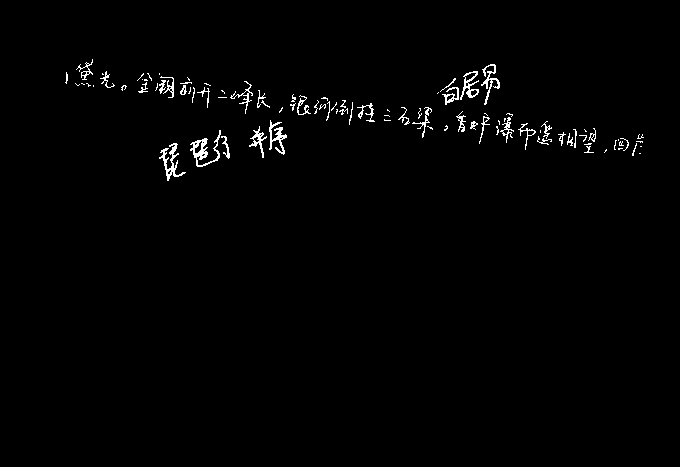 黛光。金阙前开二峰长，银河倒挂三石梁，香炉瀑布遥相望，回
白居易
琵琶行 并序